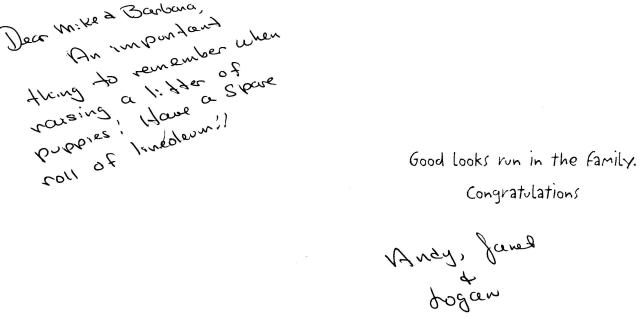 Dear Mike & Barbara,
An important
thing to remember when
raising a litter of
puppies! Have a spare
roll of lineoleum!!
Good looks run in the family.
Congratulations
Andy, Janet
&
Logan